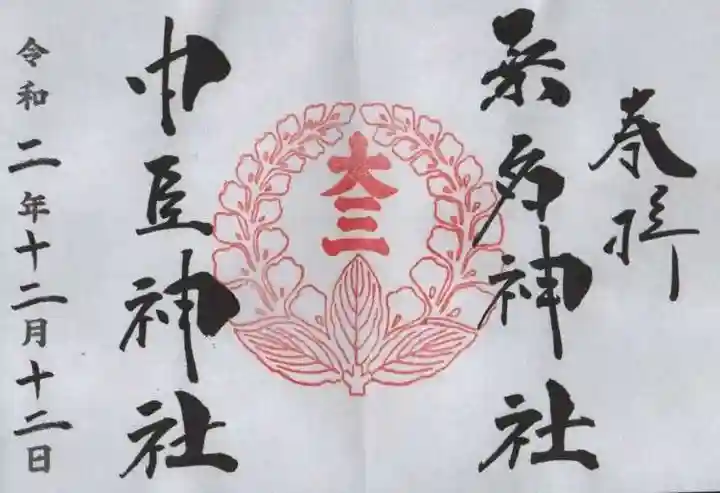 奉拝
桑名神社
大三
中臣神社
令和二年十二月十二日